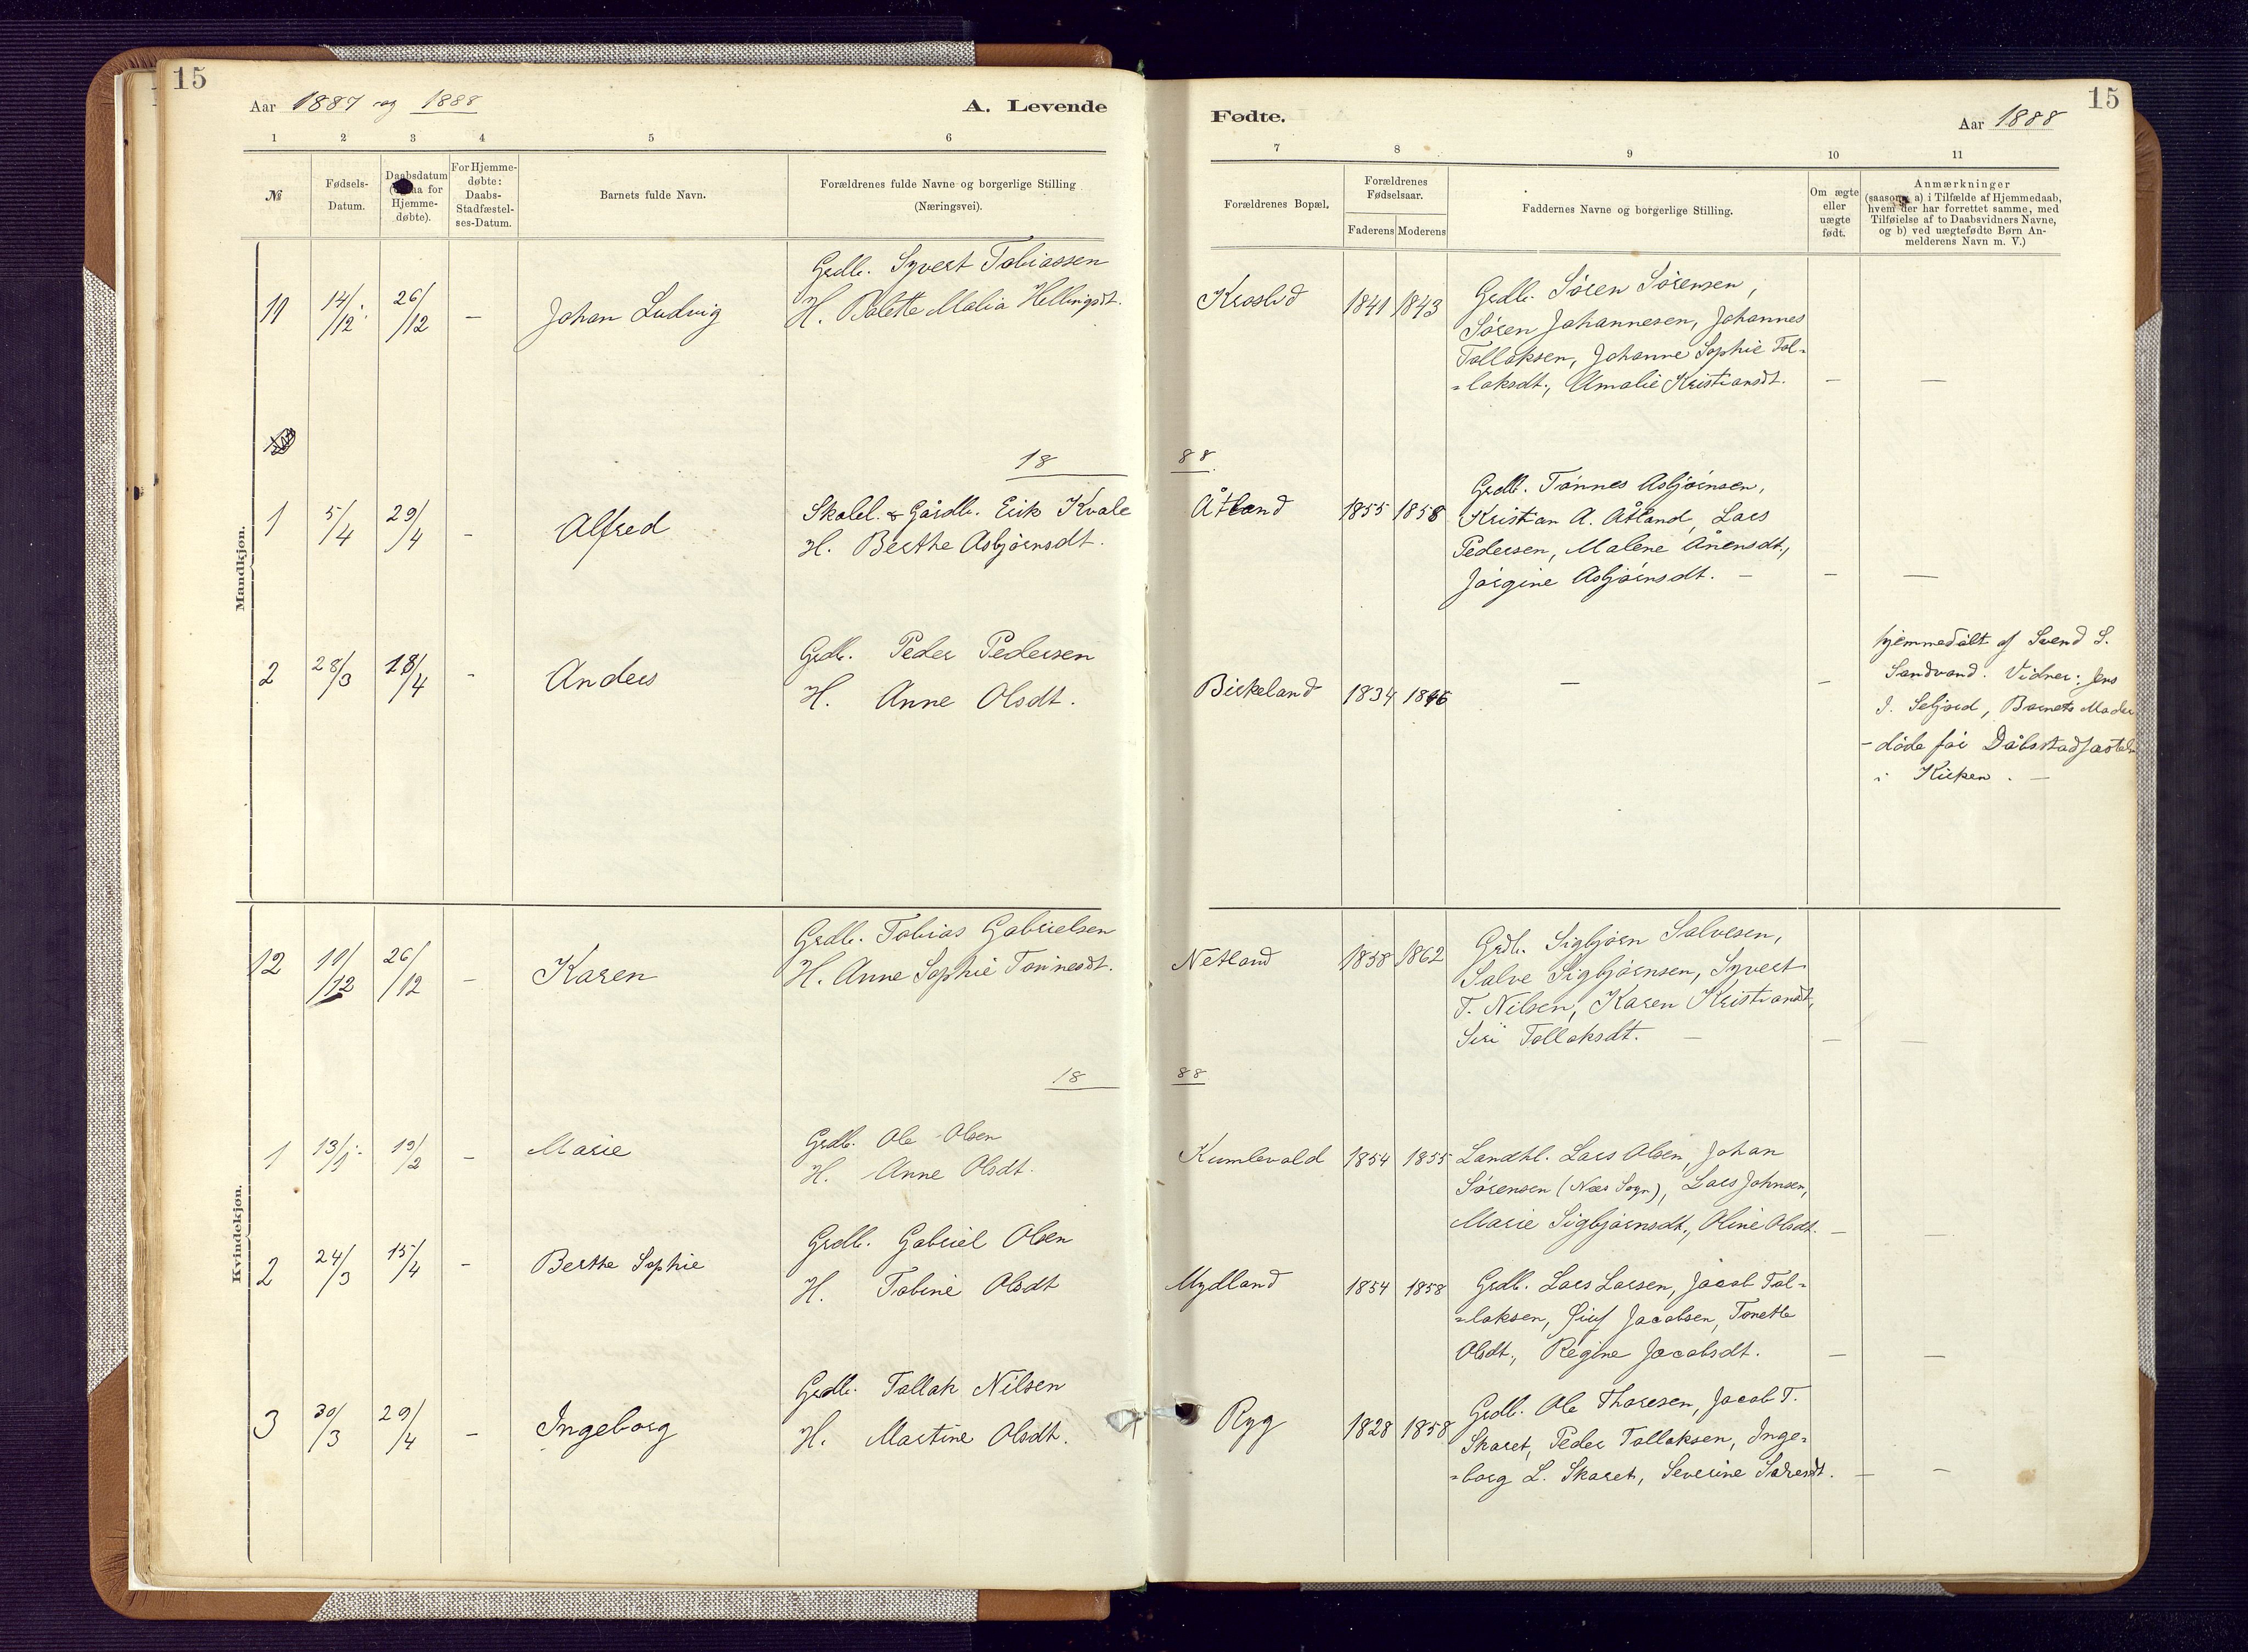 15
Aar 1887 og 1888
A. Levende
1 2 3 4 5 6
№
Fødsels-
Datum.
Daabsdatum
for
Hjemme-
døbte).
For Hjemme-
døbte:
Daabs-
Stadfæstel-
ses-Datum.
Barnets fulde Navn.
Forældrenes fulde Navne og borgerlige Stilling
(Næringsvei).
Mandkjøn.
11 14/12. 26/12 - Johan Ludvig
Grdb. Syvert Tobiassen
H. Bolette Malia Hellingsdt.
18
1 5/4 29/4 - Alfred
Skolel. & Gårdb. Erik Kvale
H. Berthe Asbjørnsdt.
2 28/3 18/4 - Anders
Grdb. Peder Pedersen
H. Anne Olsdt.
Kvindekjøn.
12 11/12 26/12 - Karen
Grdb. Tobias Gabrielsen
H. Anne Sophie Tønnesdt.
18
1 13/1. 19/2 - Marie
Grdb. Ole Olsen
H. Anne Olsdt.
2 24/3 15/4 - Berthe Sophie
Grdb. Gabriel Olsen
H. Tobine Olsdt
3 30/3 29/4 - Ingeborg
Grdb. Tallak Nilsen
H. Martine Olsdt.
15
Fødte.
Aar 1888
7 8 9 10 11
Forældrenes Bopæl.
Forældrenes
Fødselsaar.
Faderens Moderens
Faddernes Navne og borgerlige Stilling.
Om ægte
eller
uægte
født.
Anmærkninger
(saasom a) i Tilfælde af Hjemmedaab,
hvem der har forrettet samme, med
Tilføielse af to Daabsvidners Navne,
og b) ved uægtefødte Børn An-
melderens Navn m. V.)
Kroslid 1841 1843
Grdb. Søren Sørensen,
Søren Johannesen, Johannes
Tallaksen, Johanne Sophie Tal-
-laksdt., Amalie Kristiansdt. - -
88
Åtland 1855 1858
Grdb. Tønnes Asbjørnsen,
Kristian A. Åtland, Lars
Pedersen, Malene Ånensdt.,
Jørgine Asbjørnsdt. - - -
Birkeland 1834 1846 - -
hjemmedøbt af Svend S.
Sandvand. Vidner: Jens
J. Seljord, Barnets Moder
- døde før Dåbsstadfæstelse
i Kirken. -
Netland 1858 1862
Grdb. Sigbjørn Salvesen,
Salve Sigbjørnsen, Syvert
T. Nilsen, Karen Kristiansdt,
Siri Tallaksdt. - - -
88
Kumlevold 1854 1855
Landhl. Lars Olsen, Johan
Sørensen (Nes Sogn), Lars Johnsen,
Marie Sigbjørnsdt., Oline Olsdt. - -
Mydland 1854 1858
Grdb. Lars Larsen, Jacob Tal-
-laksen, Jacobsen, Tonette
Olsdt., Regine Jacobsdt. - -
Ryg 1828 1858
Grdb. Ole Thoresen, Jacob T.
Skaret, Peder Tallaksen, Inge-
-borg L. Skaret, Severine Sørensdt. - -